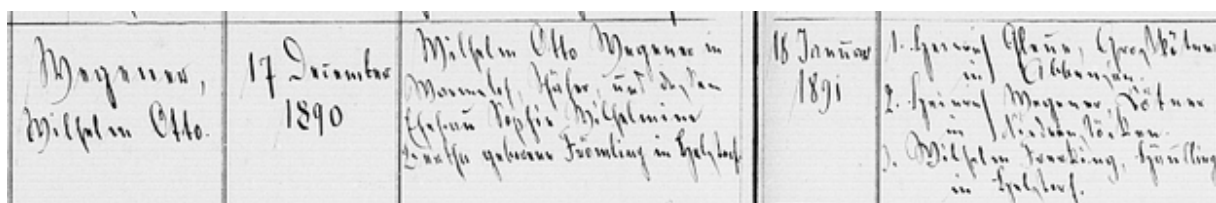 Wegener,
Wilhelm Otto.
17 December
1890
Wilhelm Otto Wegener in
Warmeloh, und dessen
Ehefrau Sophie Wilhelmine
Bertha geborene Frömling in Helstorf.
18 Januar
1891
1. Heinrich Großkötner
in Abbensen.
2. Heinrich Wegener, Kötner
in Niedernstöcken.
3. Wilhelm Frerking, Häusling
in Helstorf.